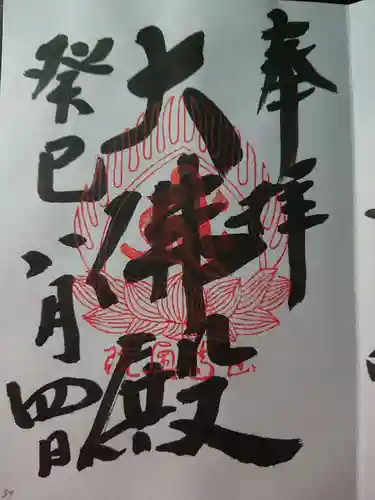 奉拝
大佛殿
癸巳八月四日
39